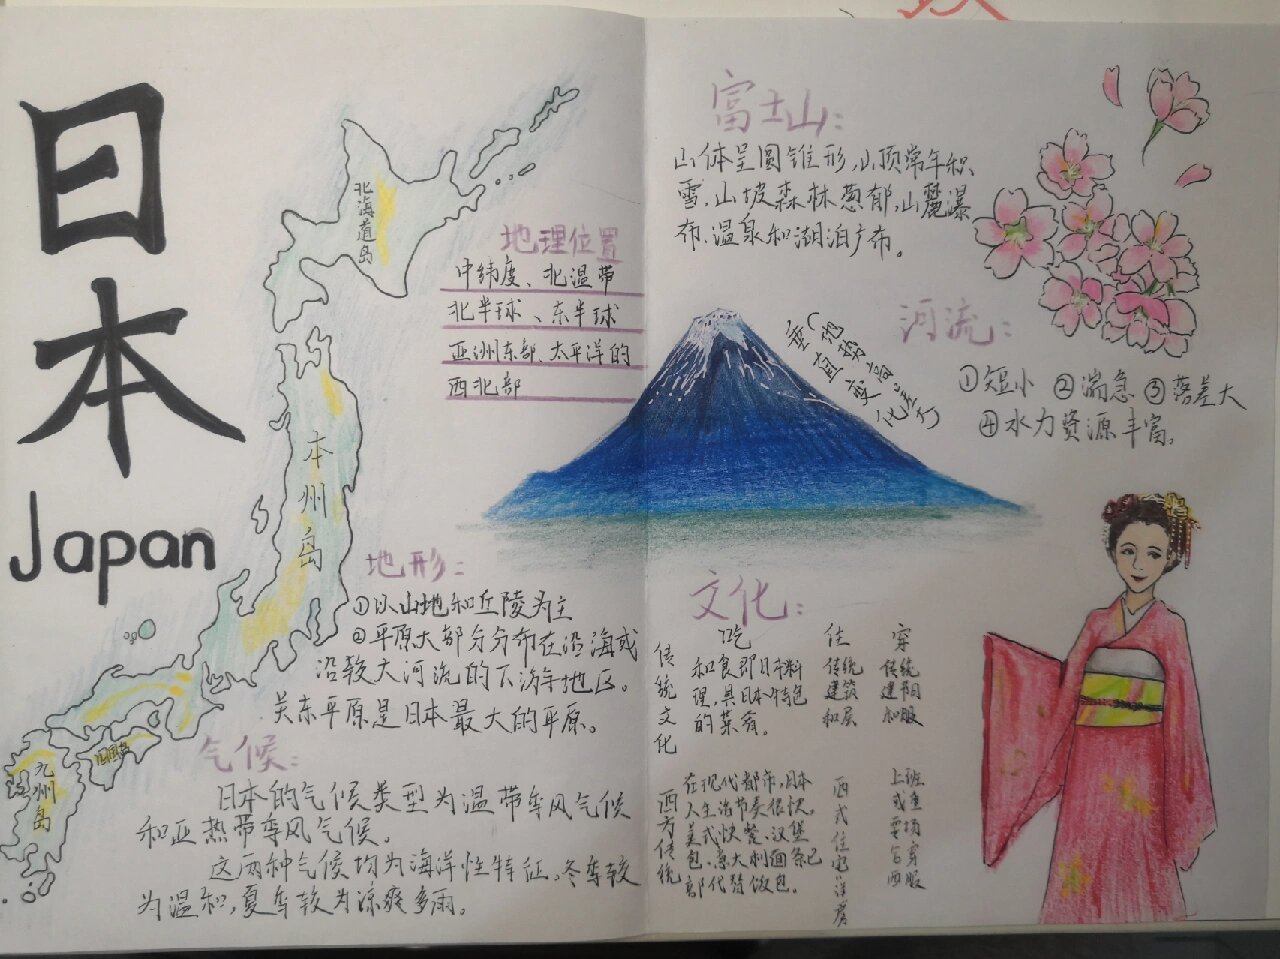 日
本
Japan
北海道岛
本州岛
四国岛
九州岛
地理位置
中纬度、北温带
北半球、东半球
亚洲东部、太平洋的
西北部
地形:
①以山地和丘陵为主
②平原大部分分布在沿海或
沿较大河流的下游等地区。
关东平原是日本最大的平原。
气候:
日本的气候类型为温带季风气候
和亚热带季风气候。
这两种气候均为海洋性特征,冬季较
为温和,夏季较为凉爽多雨。
富士山:
山体呈圆锥形,山顶常年积
雪,山坡森林葱郁,山麓瀑
布、温泉和湖泊广布。
垂直变化
(地势高差大)
河流:
①短小 ②湍急 ③落差大
④水力资源丰富。
文化:
传统文化
吃
和食即日本料
理,具日本特色
的菜肴。
住
传统
建筑
和屋
穿
传统
和服
在现代都市,日本
人生活节奏很快。
美式快餐、汉堡
包、意大利面条已
部代替饭包。
西式住宅洋房
上班
或重
要场
合穿
西服